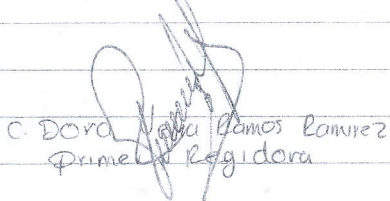 C. Dora Ramos Ramirez
Primer Regidora